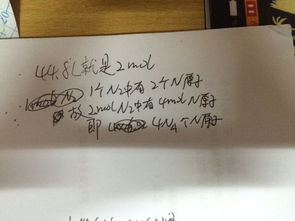 44.8L就是2mol
1个N₂中有2个N原子
故2molN₂中有4molN原子
即4Nₐ个N原子